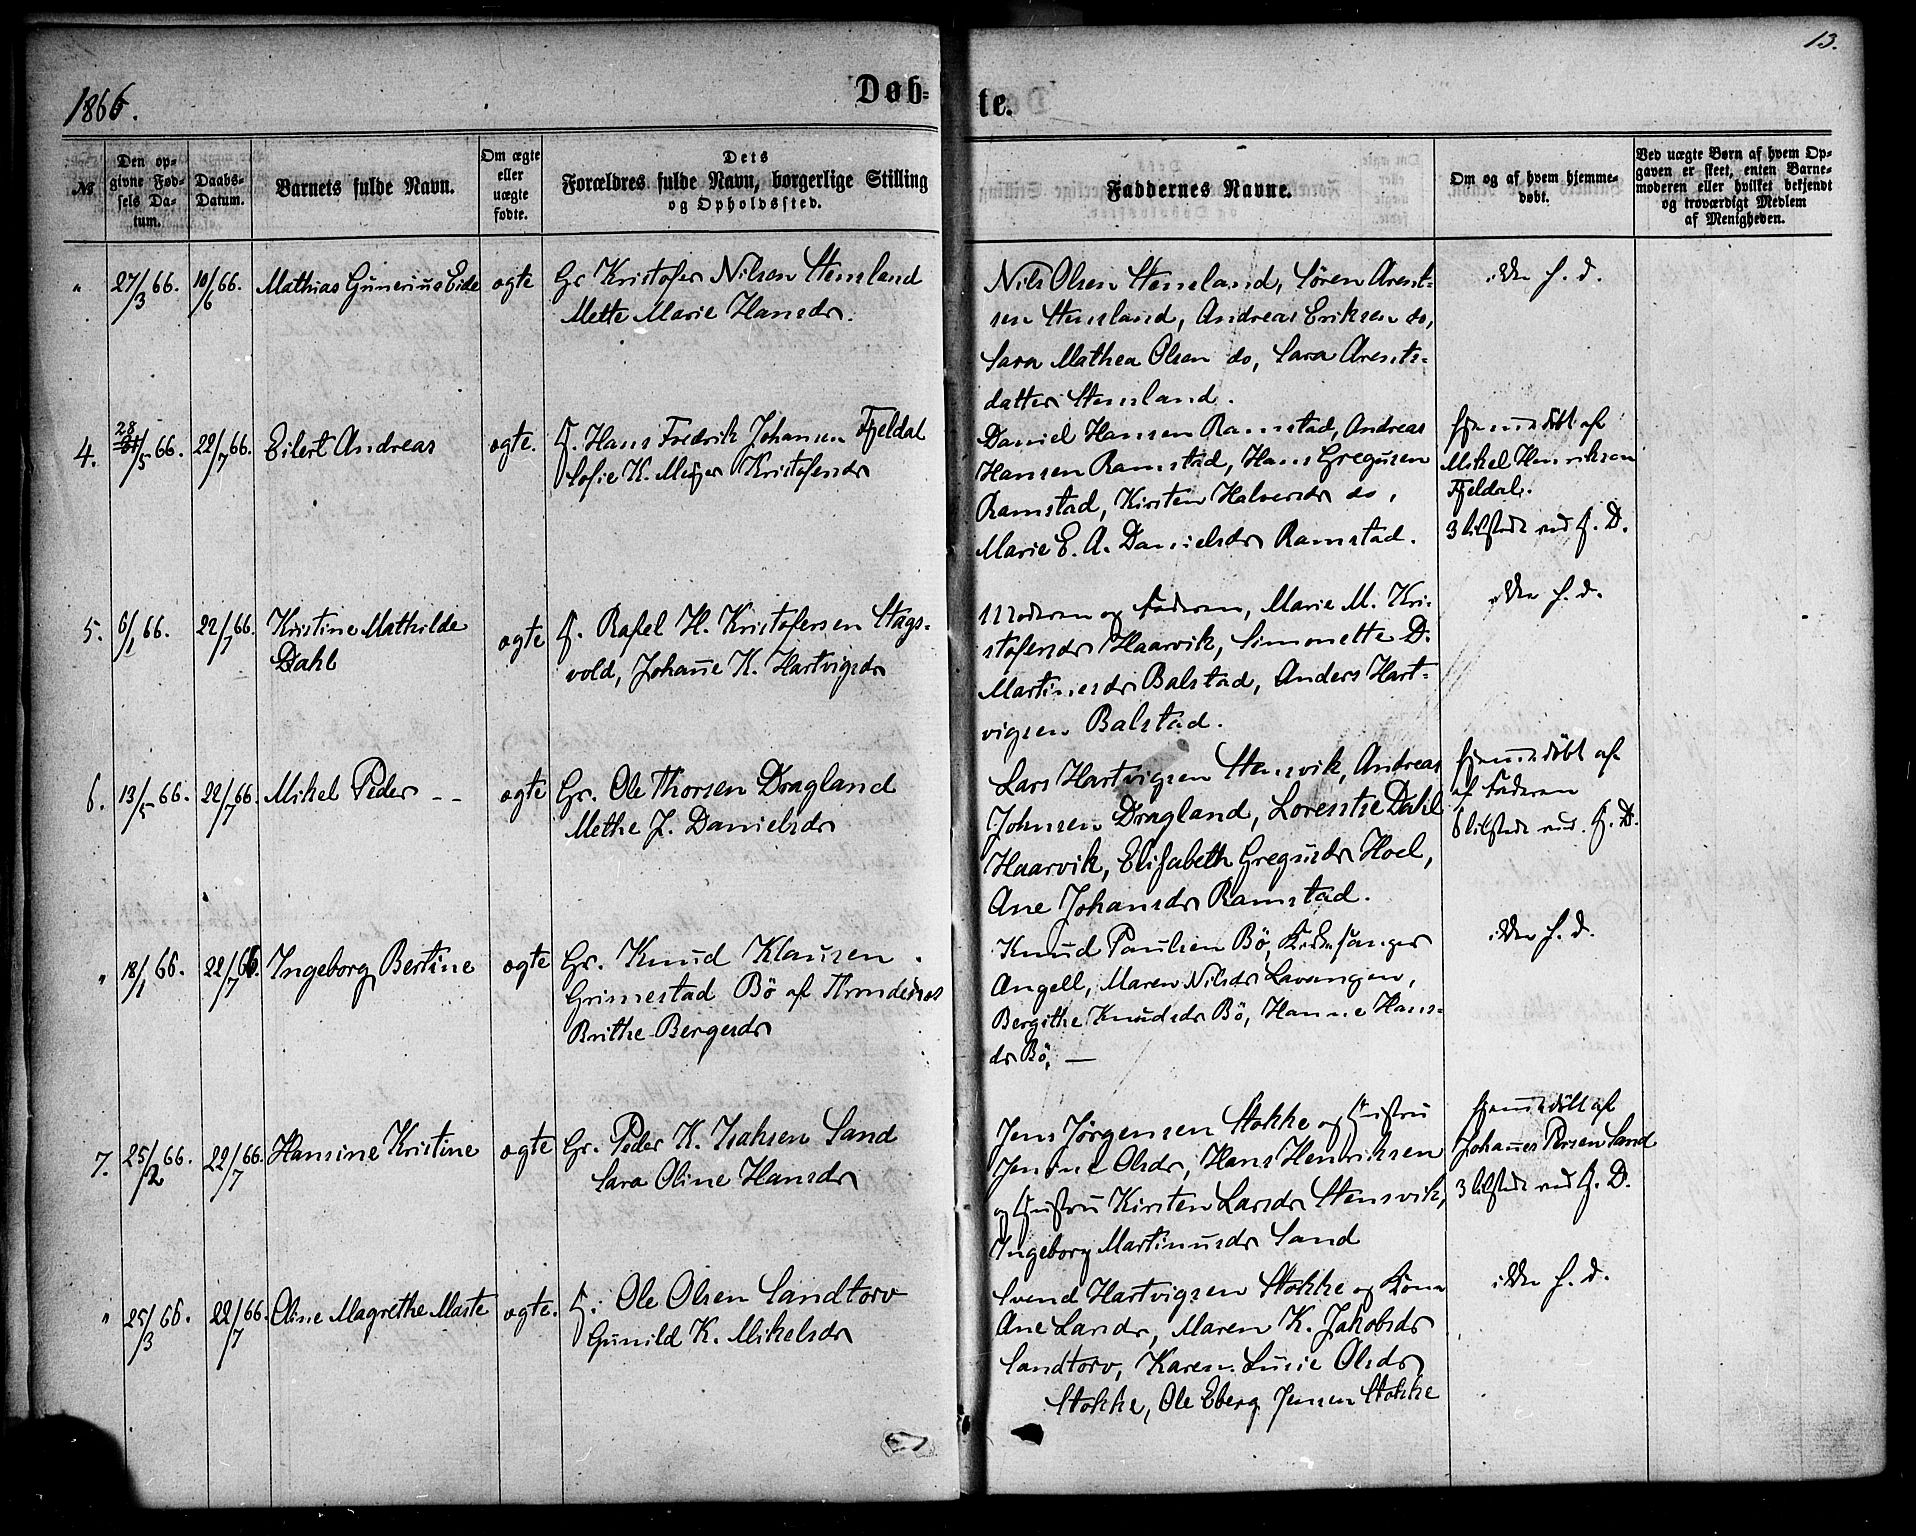 13.
1866.
Døb-te.
№
Den opgivne Fødsels Datum.
Daabs-Datum.
Barnets fulde Navn.
Om ægte eller uægte født.
Dets Forældres fulde Navn, borgerlige Stilling og Opholdssted.
Faddernes Navne.
Om og af hvem hjemmedøbt.
Ved uægte Børn af hvem Opgaven er skeet, enten Barnemoderen eller hvilket bekjendt og troværdigt Medlem af Menigheden.
" 27/3 66. 10/6 66. Mathias Gunerius Eide ogte Gr Kristofer Nilsen Hemsland
Mette Marie Hansdr.
Nils Olsen Hemsland, Sören Arent-
sen Hemsland, Andreas Eriksen do,
Sara Mathea Olsen do, Sara Arents-
datter Hemsland.
ikke h. d.
4. 28/5 66. 22/7 66. Eilert Andreas ogte. G. Hans Fredrik Johansen Fjeldal
Sofie K. Meyer Kristofersdr
Daniel Hansen Ramstad, Andreas
Hansen Ramstad, Hans Gregusen
Ramstad, Kirsten Halvorsdr do,
Marie E. A. Danielsdr Ramstad.
hjemmedöbt af
Mikel Henriksen
Fjeldal.
3 tilstede ved H. D.
5. 6/1 66. 22/7 66. Kristine Mathilde
Dahl
ogte G. Rafel H. Kristofersen Stags-
vold, Johane K. Hartvigsdr
Moderen og Faderen, Marie M. Kri-
stofersdr Haarvik, Simonette D.
Martinesdr Balstad, Anders Hart-
vigsen Balstad.
ikke h. d.
6. 13/5 66. 22/7 66. Mikel Peder -- ogte Gr. Ole Thorsen Dragland
Methe J. Danielsdr
Lars Hartvigsen Hemsvik, Andreas
Johnsen Dragland, Lorentse Dahl
Haarvik, Elisabeth Gregusdr Hoel,
Ane Johansdr Ramstad.
hjemmedöbt af
af Faderen
6 tilstede ved. H. D.
" 18/1 66. 22/7 66. Ingeborg Bertine ogte Gr. Knud Klausen
Grimestad Bö af Throndenes
Brithe Bergersdr
Knud Paulsen Bö, Kirkesanger
Angell, Maren Nilsdr Lavangen,
Bergithe Knudsdr Bö, Hanne Hans-
dr Bö, —
ikke h. d.
7. 25/2 66. 22/7 66. Hansine Kristine ogte Gr. Peder K. Isaksen Sand
Sara Oline Hansdr
Jens Jörgensen Stokke og Hustru
Jensine Olsdr, Hans Henriksen
og Hustru Kirsten Larsdr Hemsvik,
Ingeborg Martinusdr Sand
hjemmedöbt af
Johannes Persen Sand
3 tilstede ved H. D.
" 25/3 66. 22/7 66. Oline Magrethe Marte ogte. G. Ole Olsen Sandtorv
Gunild K. Mikelsdr
Svend Hartvigsen Stokke og Kone
Ane Larsdr, Maren K. Jakobsdr
Sandtorv, Karen Lusie Olsdr
Stokke, Ole Eberg Jensen Stokke
ikke h. d.